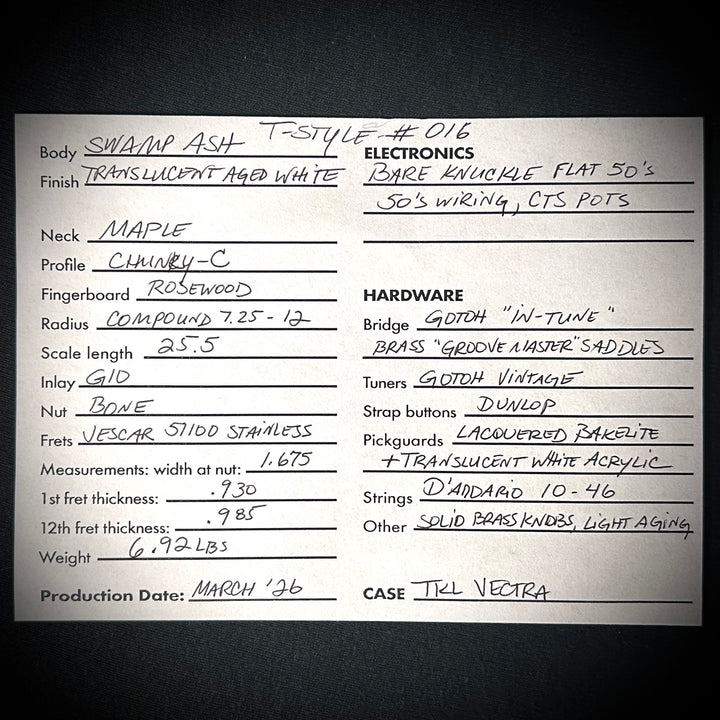 T-STYLE # 016
Body SWAMP ASH
Finish TRANSLUCENT AGED WHITE
Neck MAPLE
Profile CHUNKY-C
Fingerboard ROSEWOOD
Radius COMPOUND 7.25 - 12
Scale length 25.5
Inlay GID
Nut BONE
Frets JESCAR 57100 STAINLESS
Measurements: width at nut: 1.675
1st fret thickness: .930
12th fret thickness: .985
Weight 6.92 LBS
Production Date: MARCH '26
ELECTRONICS
BARE KNUCKLE FLAT 50's
50's WIRING, CTS POTS
HARDWARE
Bridge GOTOH "IN-TUNE"
BRASS "GROOVE MASTER" SADDLES
Tuners GOTOH VINTAGE
Strap buttons DUNLOP
Pickguards LACQUERED BAKELITE
+TRANSLUCENT WHITE ACRYLIC
Strings D'ADDARIO 10-46
Other SOLID BRASS KNOBS, LIGHT AGING
CASE TKL VECTRA